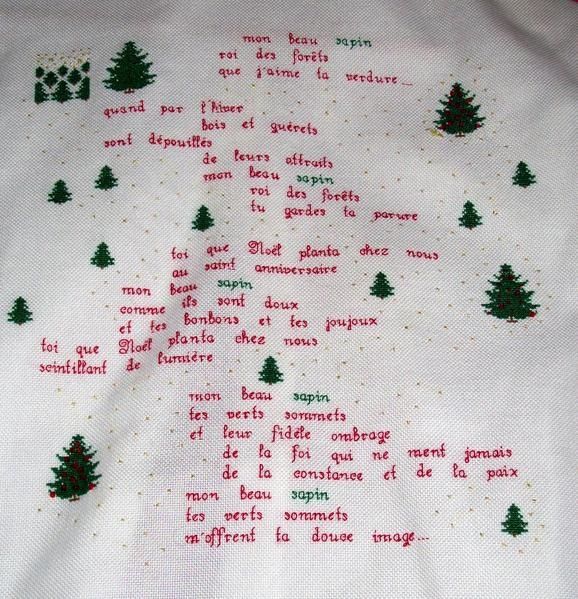 mon beau sapin
roi des forêts
que j'aime ta verdure...
quand par l'hiver
bois et guérets
sont dépouillés
de leurs attraits
mon beau sapin
roi des forêts
tu gardes ta parure
toi que Noël planta chez nous
au saint anniversaire
mon beau sapin
comme ils sont doux
et tes bonbons et tes joujoux
toi que Noël planta chez nous
scintillant de lumière
mon beau sapin
tes verts sommets
et leur fidèle ombrage
de la foi qui ne ment jamais
de la constance et de la paix
mon beau sapin
tes verts sommets
m'offrent ta douce image...